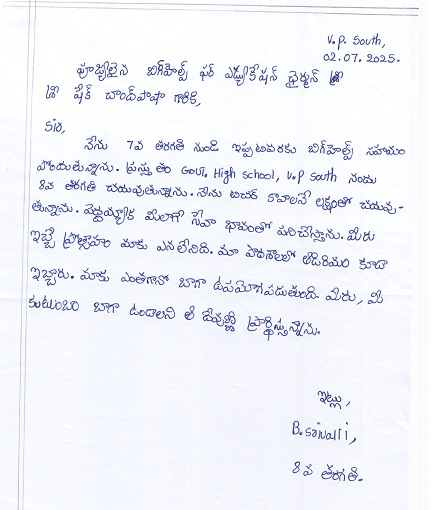 V.P. South,
02.07.2025.
పూజ్యులైన బిగ్‌హెల్ప్ ఫర్ ఎడ్యుకేషన్ ఛైర్మన్ శ్రీ
శ్రీ షేక్ చాంద్‌పాషా గారికి,
Sir,
నేను 7వ తరగతి నుండి ఇప్పటివరకు బిగ్‌హెల్ప్ సహాయం
పొందుతున్నాను. ప్రస్తుతం GOVT. High school, V.P South నందు
8వ తరగతి చదువుతున్నాను. నేను టీచర్ కావాలనే లక్ష్యంతో చదువు-
తున్నాను. పెద్దయ్యాక మీలాగే సేవా భావంతో పనిచేస్తాను. మీరు
ఇచ్చే ప్రోత్సాహం మాకు ఎనలేనిది. మా పాఠశాలలో కూడా
ఇచ్చారు. మాకు ఎంతగానో బాగా ఉపయోగపడుతుంది. మీరు, మీ
కుటుంబం బాగా ఉండాలని ఆ దేవుణ్ణి ప్రార్థిస్తున్నాను.
ఇట్లు,
B. Srivalli,
8వ తరగతి.